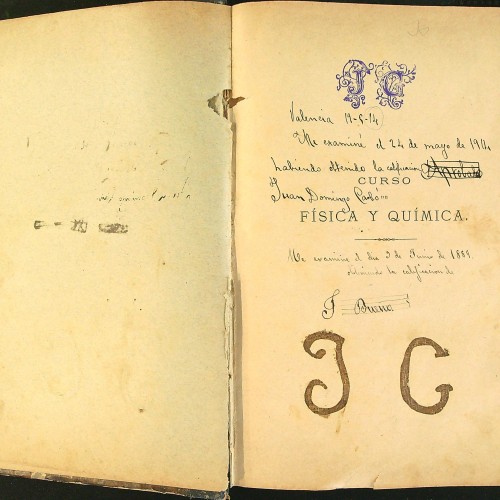 J G
Valencia 19-5-14
Me examiné el 24 de mayo de 1914
habiendo obtenido la calificación Aprobado
CURSO
Juan Domingo
FÍSICA Y QUÍMICA.
Me examiné el día 3 de Junio de 1889
obteniendo la calificación de
Bueno
J G